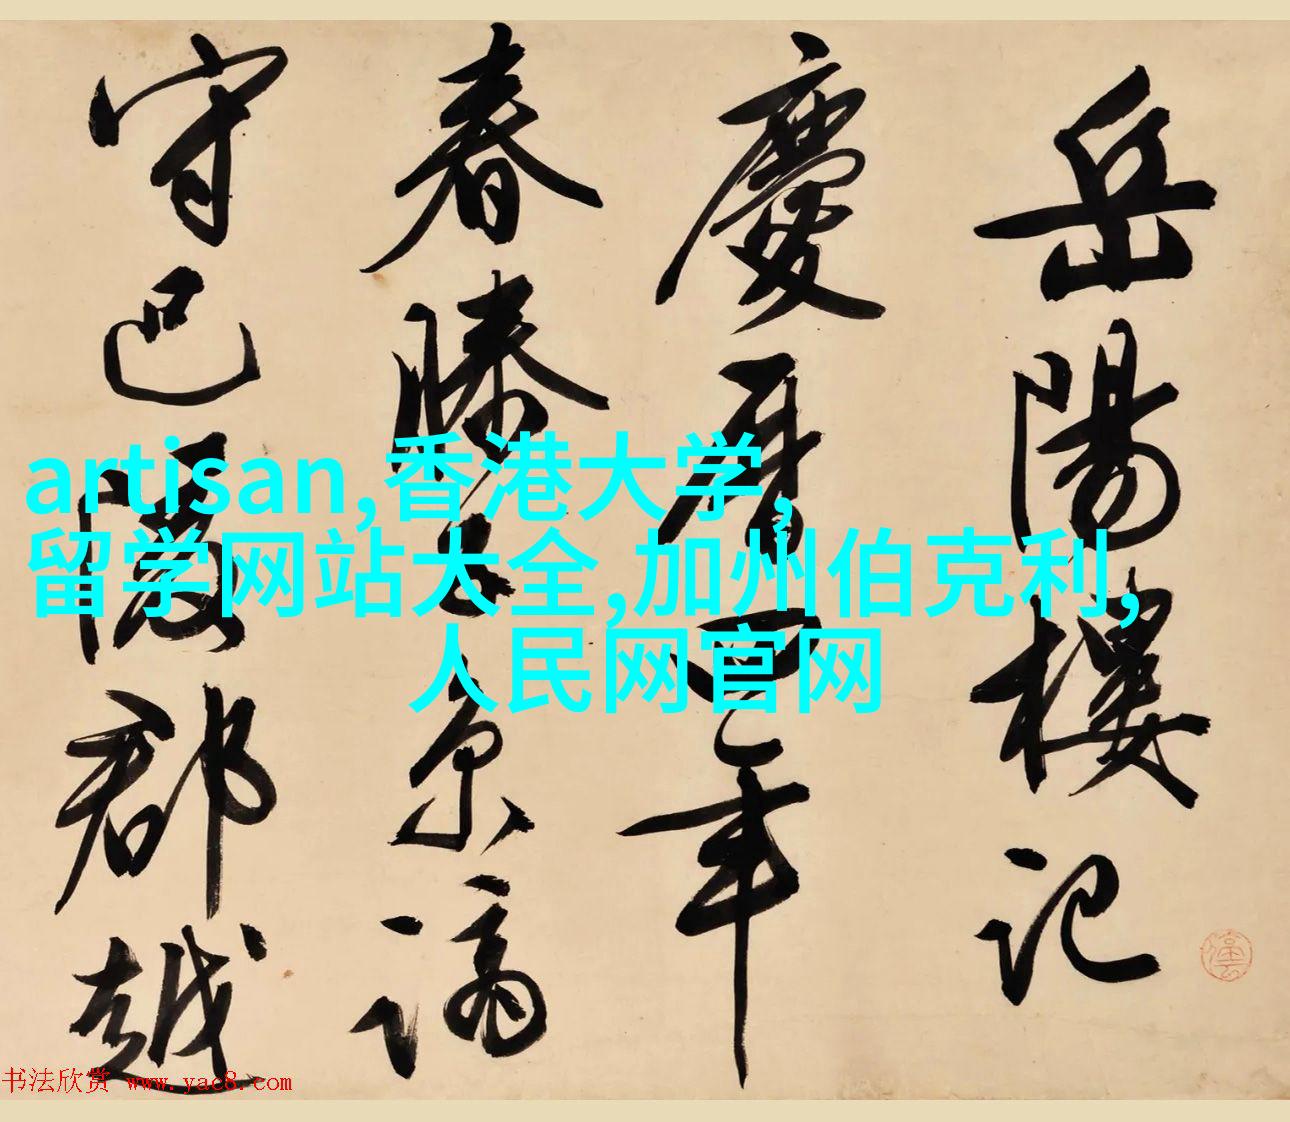 岳陽樓記
慶曆四年
春滕子京謫
守巴陵郡越
artisan,香港大学,
留学网站大全,加州伯克利,
人民网官网
书法欣赏 www.yac8.com